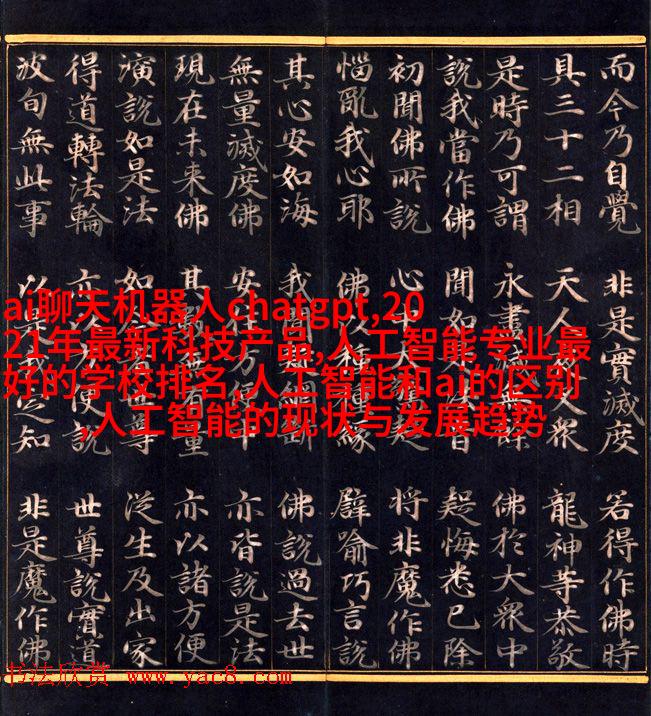 而今乃自覺 非是實滅度 若得作佛時
具三十二相 天人叉眾 龍神等恭敬
是時乃可謂 永盡滅無餘 佛於大眾中
說我當作佛 聞如法音 疑悔悉已除
初聞佛所說 心中大疑 將非魔作佛
惱亂我心耶 佛以種種緣 譬喻巧言說
其心安如海 我聞斷 佛說過去世
無量滅度佛 安住方便中 亦皆說是法
現在未來佛 其數無有量 亦以諸方便
演說如是法 如尊 從生及出家
得道轉法輪 亦以方便說 世尊說實道
波旬無此事 以是我定知 非是魔作佛
ai聊天机器人chatgpt,20
21年最新科技产品,人工智能专业最
好的学校排名,人工智能和ai的区别
,人工智能的现状与发展趋势
书法欣赏 www.yac8.com